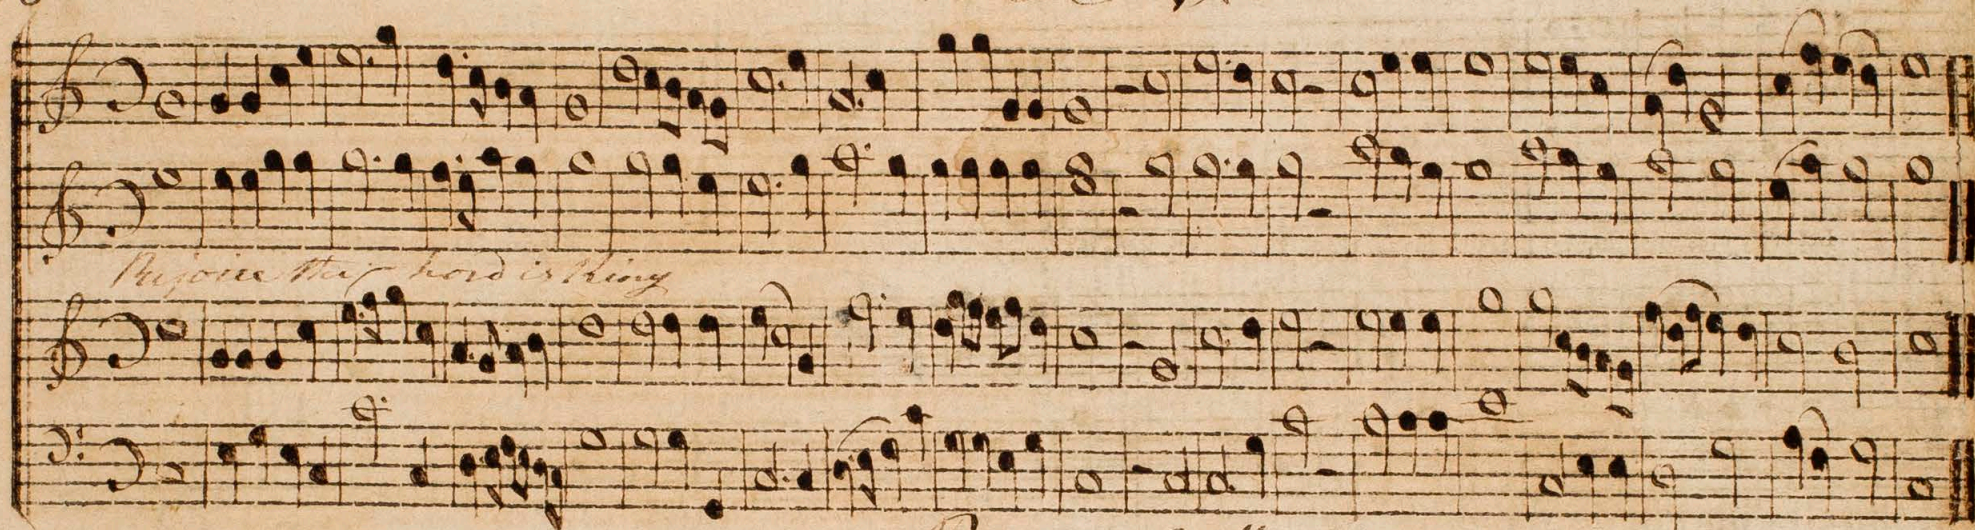 Rejoice the Lord is King